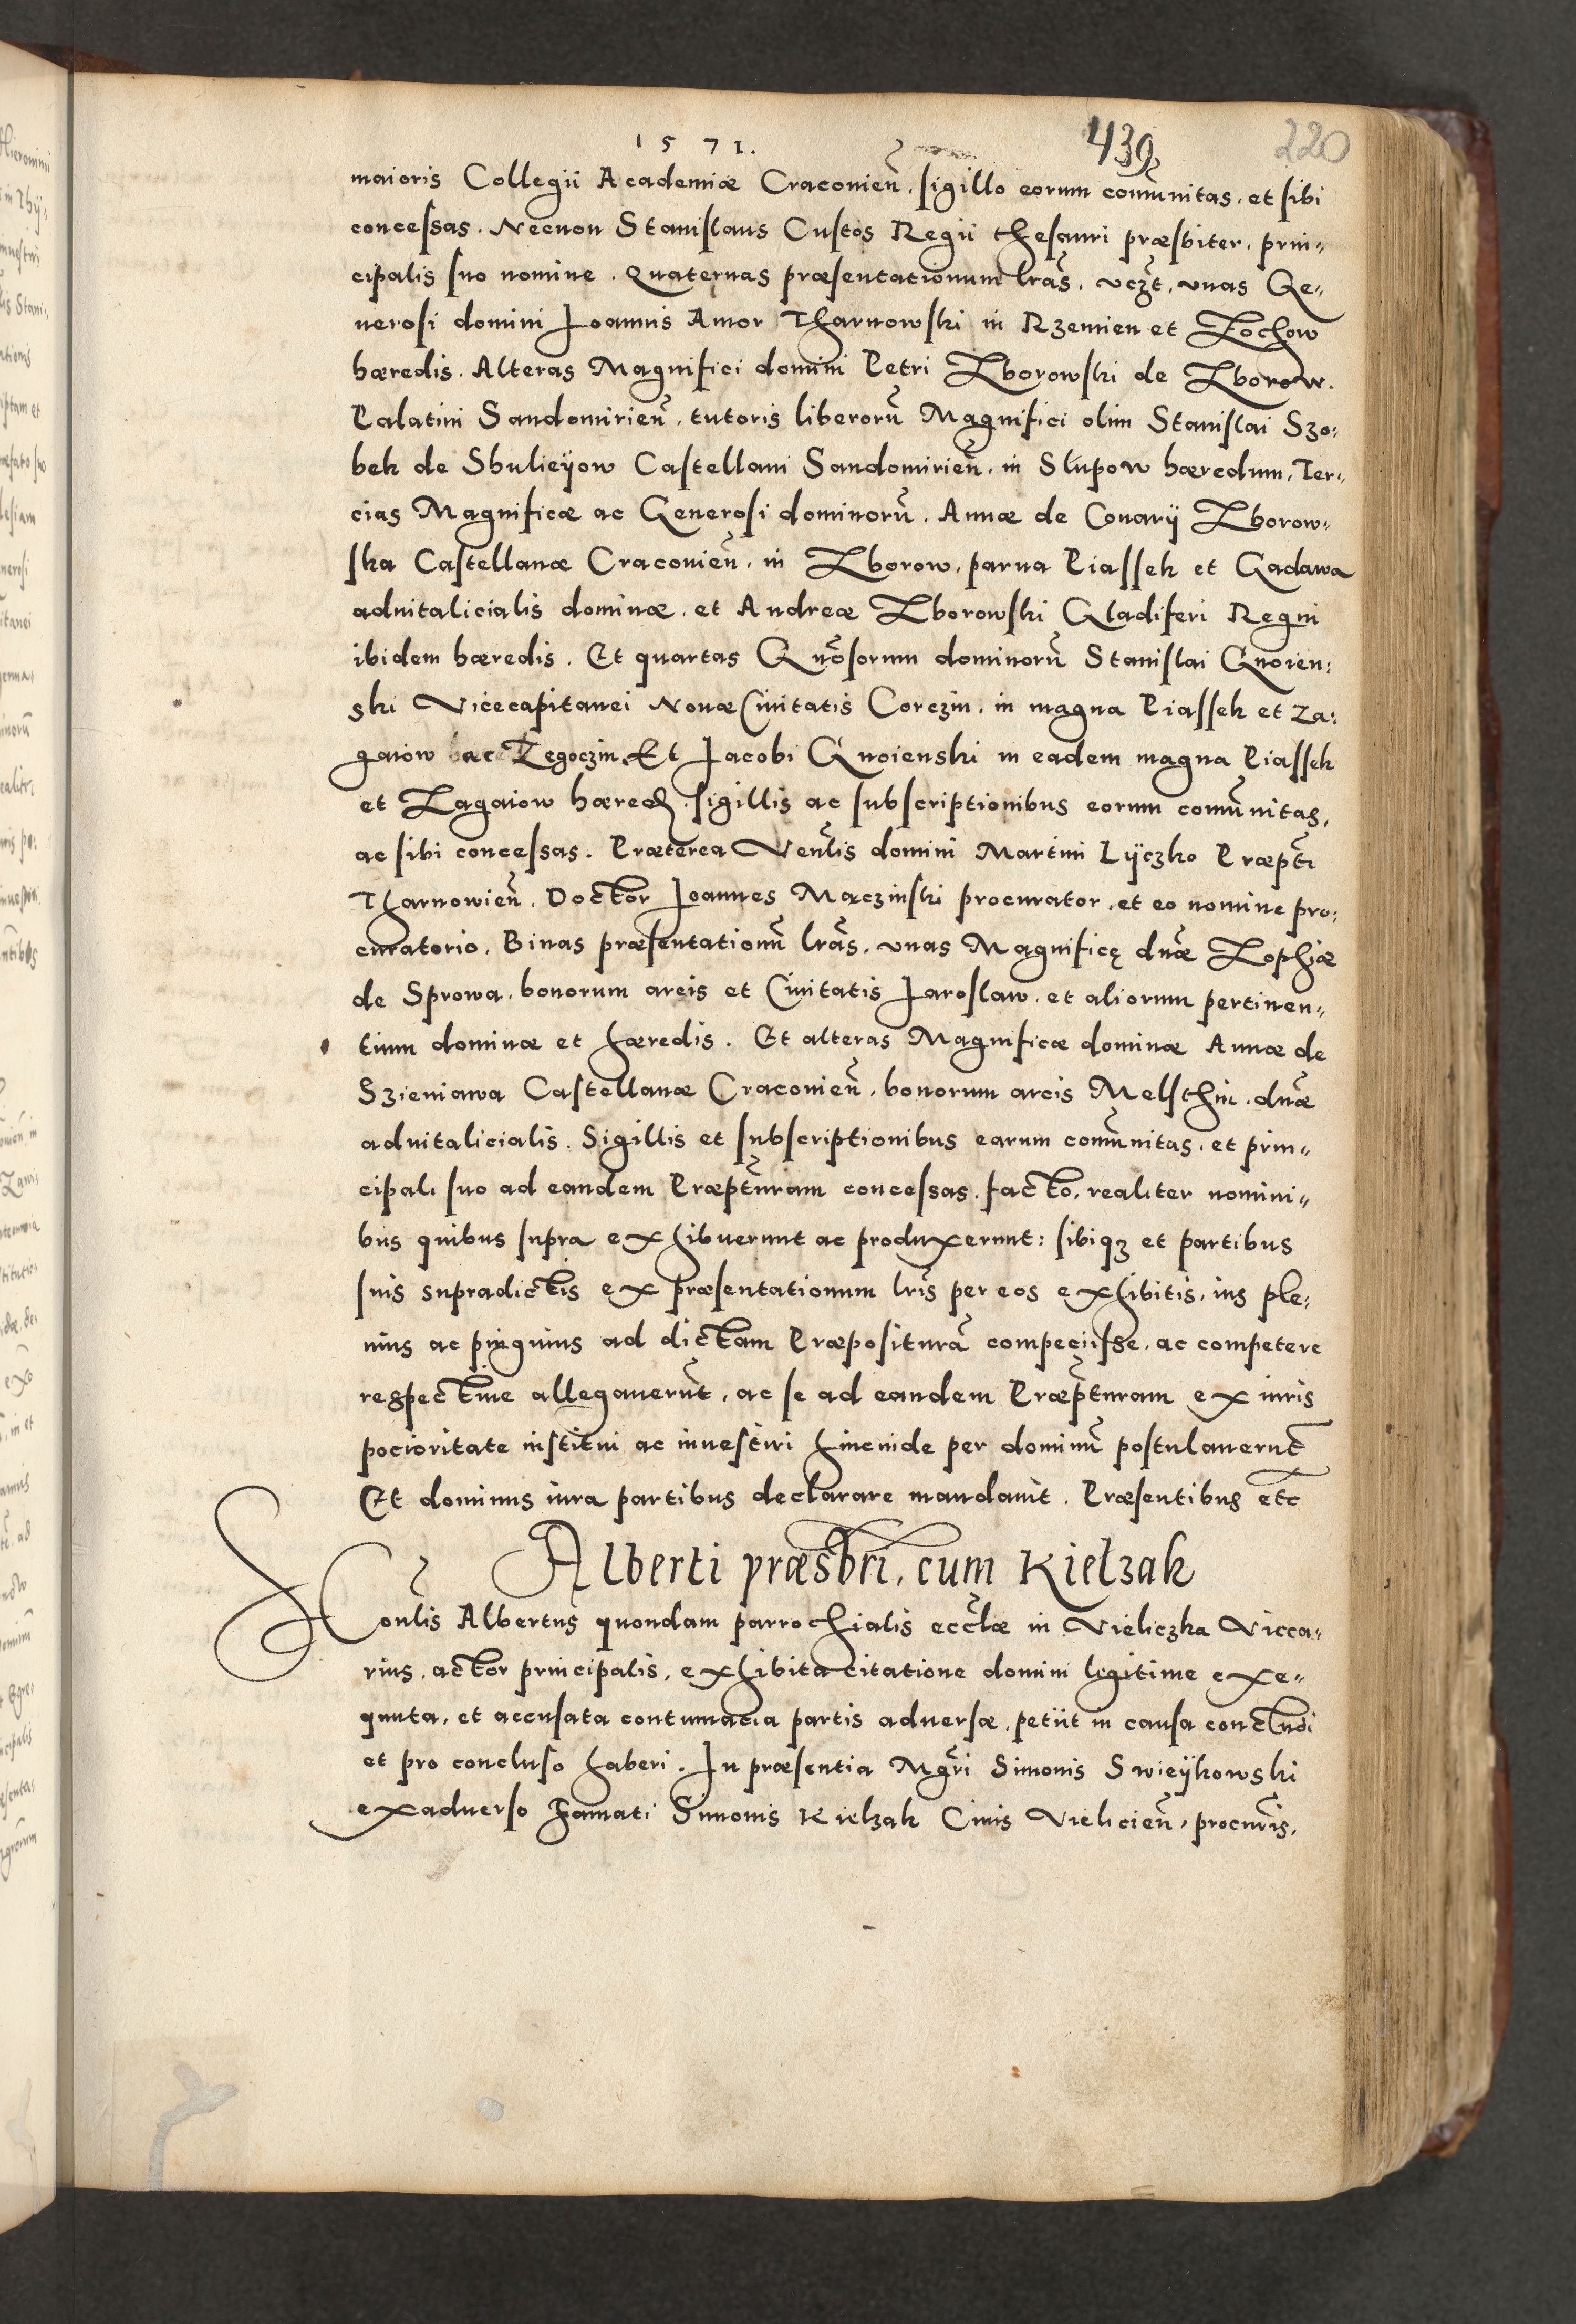 1571.
439
220
maioris Collegii Academiæ Craconień, sigillo eorum com̃unitas, et sibi
concessas. Necnon Stanislaus Custos Regii thesauri præsbiter, prin„
cipalis suo nomine. Quaternas præsentationum lras̃, vcz̃t, vnas Ge„
nerosi domini Joannis Amor Tharnowski in Rzemien et Zochow
hæredis. Alteras Magnifici domini Petri Zborowski de Zborow.
Palatini Sandomirień, tutoris liberorũ Magnifici olim Stanislai Szo:
bek de Sbulieÿow Castellani Sandomirień, in Slupow hæredum, Ter„
cias Magnificæ ac Generosi dominorũ. Annæ de Conarÿ Zborow„
ska Castellanæ Craconień, in Zborow, parua Piassek et Gadawa
aduitalicialis dominæ, et Andreæ Zborowski Gladiferi Regni
ibidem hæredis. Et quartas Gnõsorum dominorũ Stanislai Gnoien:
ski Vicecapitanei Nouæ Ciuitatis Corczin, in magna Piassek et Za:
gaiow ac Zegoczin, Et Jacobi Gnoienski in eadem magna Piassek
et Zagaiow hæred, sigillis ac subscriptionibus eorum com̃unitas,
ac sibi concessas. Præterea Veñlis domini Martini Lÿczko Præpt̃i
Tharnowień. Doctor Joannes Maczinski procurator, et eo nomine pro:
curatorio, Binas præsentationũ lras̃, vnas Magnificę dnæ̃ Zophiæ
de Sprowa, bonorum arcis et Ciuitatis Jaroslaw, et aliorum pertinen„
tium dominæ et hæredis. Et alteras Magnificæ dominæ Annæ de
Szieniawa Castellanæ Craconień, bonorum arcis Melsthin, dnæ̃
aduitalicialis. Sigillis et subscriptionibus earum com̃unitas, et prin„
cipali suo ad eandem Præpt̃uram concessas, facto, realiter nomini„
bus quibus supra exhibuerunt ac produxerunt: sibiqꝫ et partibus
suis supradictis ex præsentationum lris̃ per eos exhibitis, ius ple:
nius ac pinguius ad dictam Præpositurã competiisse, ac competere
respectiue allegauerũt, ac se ad eandem Præpt̃uram ex iuris
pocioritate institui ac inuestiri hincinde per dominũ postulauerũt
Et dominus iura partibus declarare mandauit. Præsentibus etc
Alberti præsbr̃i, cum Kielzak
Honlĩs Albertus quondam parrochialis eccl̃æ in Vieliczka Vicca„
rius, actor principalis, exhibita citatione domini legitime exe„
quuta, et accusata contumacia partis aduersæ, petiit in causa concludi
et pro concluso haberi. In præsentia Mgr̃i Simonis Swieÿkowski
exaduerso famati Simonis Kielzak Ciuis Vielicień, procur̃is,